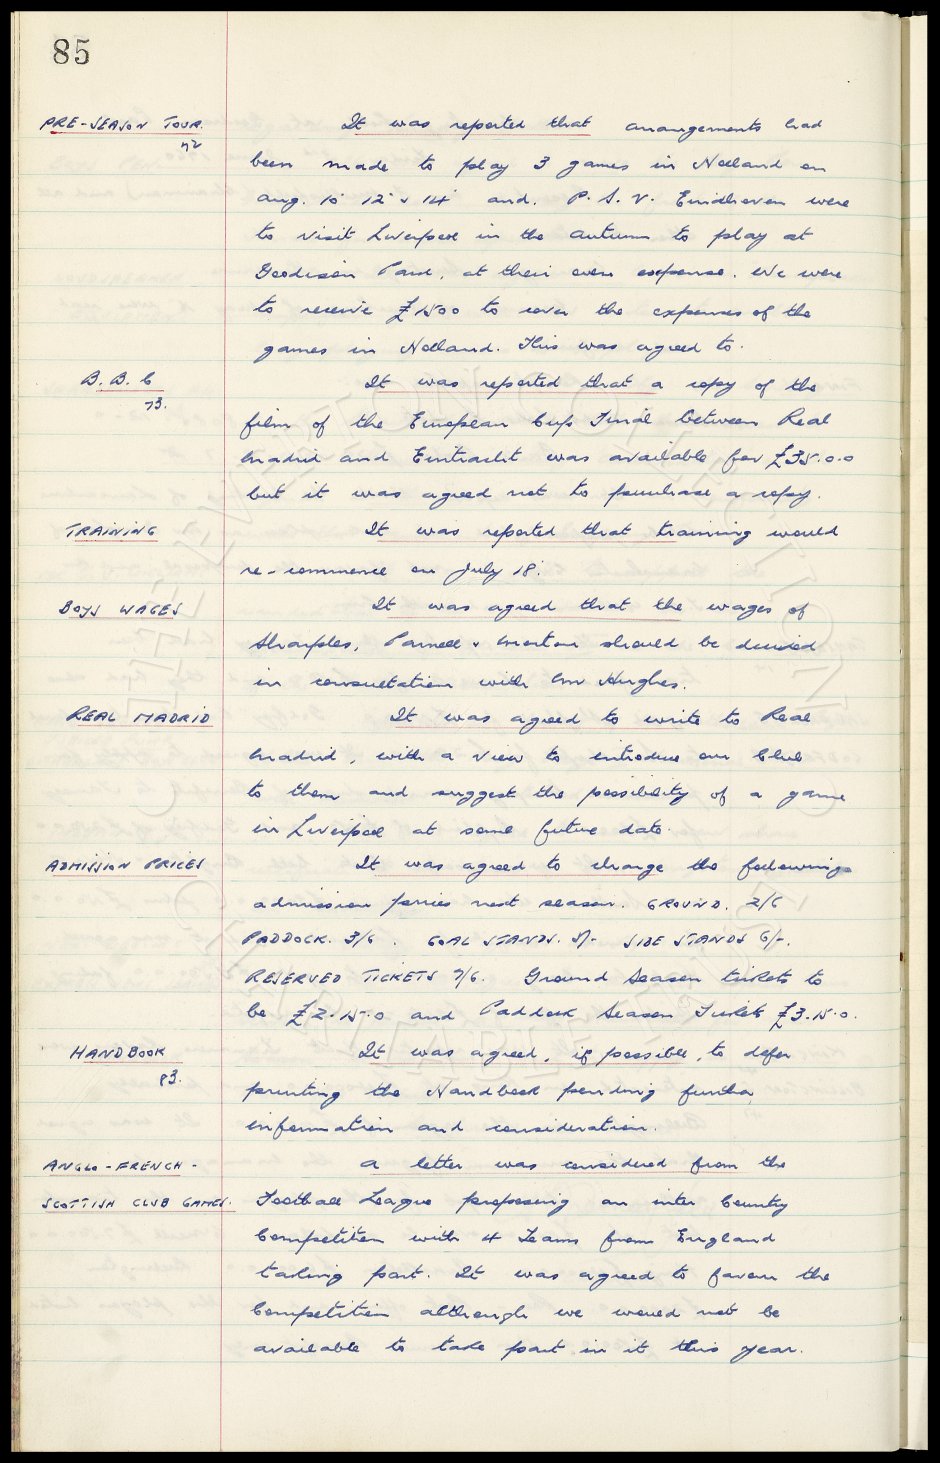 85
PRE-SEASON TOUR. It was reported that arrangements had
72 been made to play 3 games in Holland on
Aug. 10 12 & 14 and. P.S.V. Eindhoven were
to visit Liverpool in the Autumn to play at
Goodison Park, at their own expense. We were
to receive £1500 to cover the expenses of the
games in Holland. This was agreed to.
B.B.C It was reported that a copy of the
73. film of the European Cup Final between Real
Madrid and Eintracht was available for £35.0.0
but it was agreed not to purchase a copy.
TRAINING It was reported that training would
re-commence on July 18.
BOYS WAGES It was agreed that the wages of
Sharples, Parnell & Morton should be decided
in consultation with Mr Hughes.
REAL MADRID It was agreed to write to Real
Madrid, with a view to introduce our Club
to them and suggest the possibility of a game
in Liverpool at some future date.
ADMISSION PRICES It was agreed to charge the following
admission prices next season. GROUND. 2/6
PADDOCK. 3/6. GOAL STANDS. 5/- SIDE STANDS 6/-.
RESERVED TICKETS 7/6. Ground Season tickets to
be £2.15.0 and Paddock Season Tickets £3.15.0.
HANDBOOK It was agreed, if possible, to defer
83. printing the Handbook pending further
information and consideration.
ANGLO-FRENCH- A letter was considered from the
SCOTTISH CLUB GAMES. Football League proposing an inter Country
Competition with 4 Teams from England
taking part. It was agreed to favour the
Competition although we would not be
available to take part in it this year.